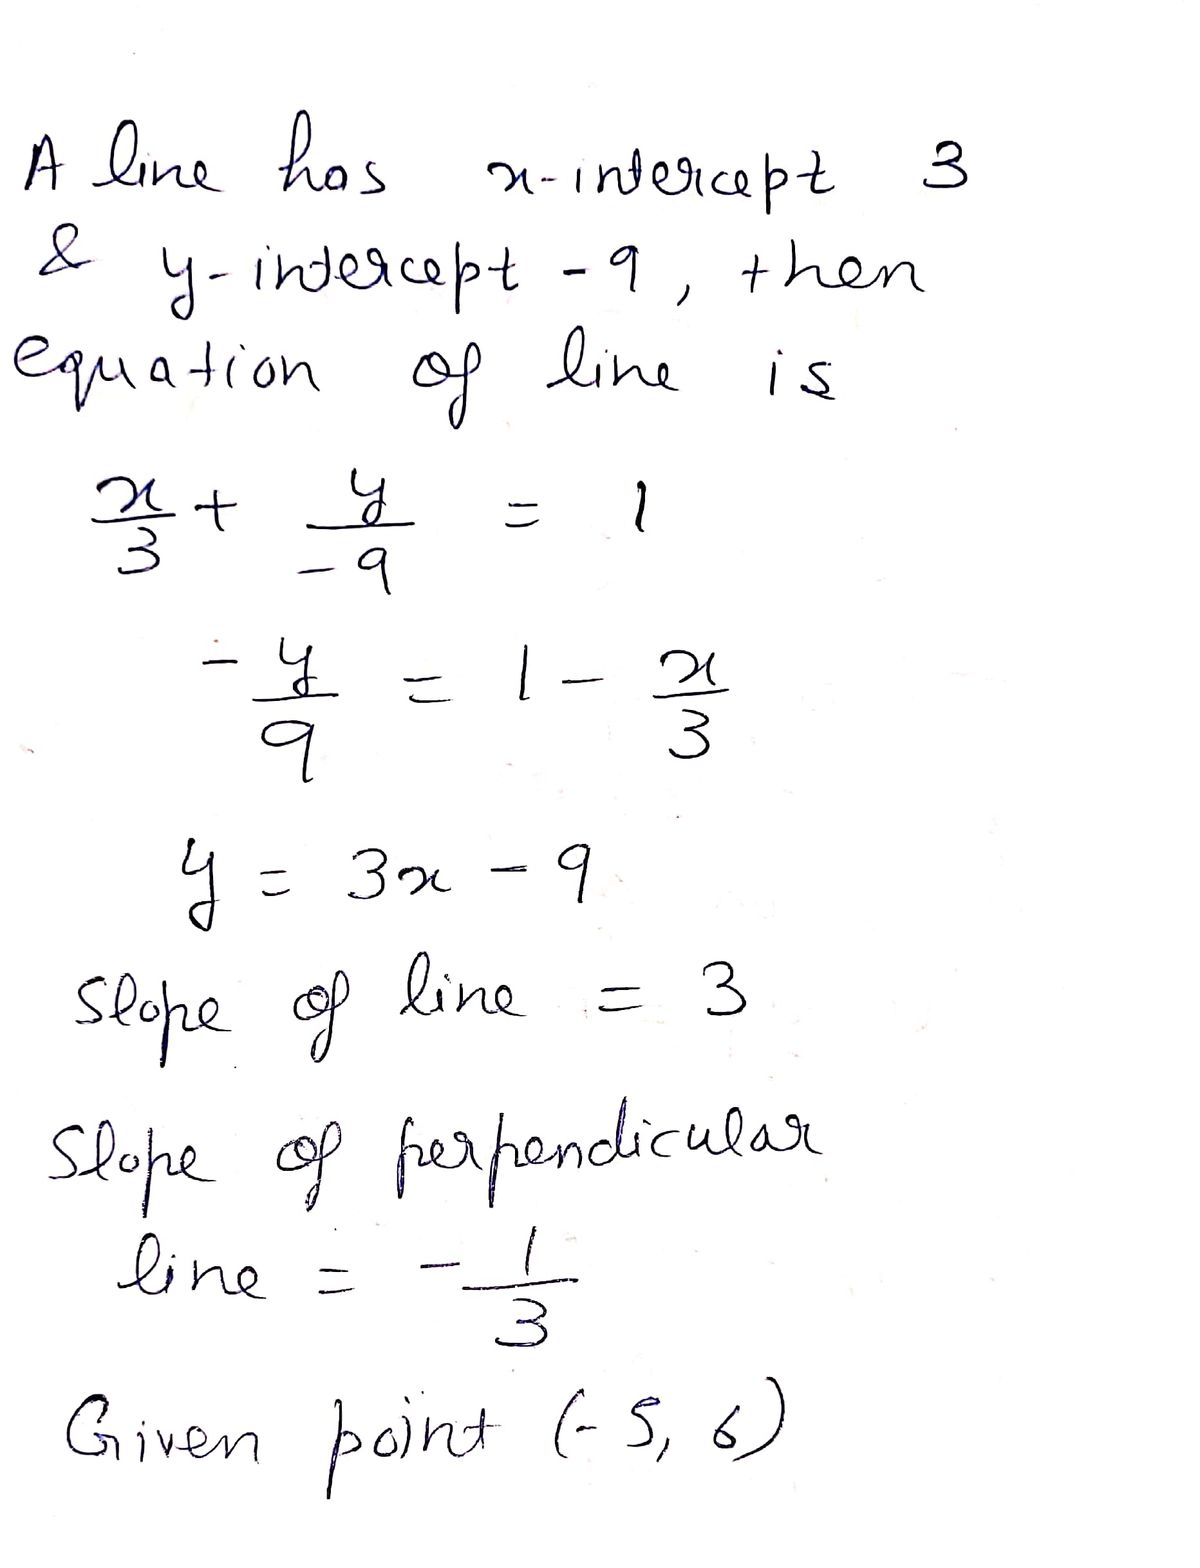 A line has x-intercept 3
& y-intercept -9, then
equation of line is
x/3 + y/-9 = 1
-y/9 = 1 - x/3
y = 3x - 9
Slope of line = 3
Slope of perpendicular
line = -1/3
Given point (-5, 6)